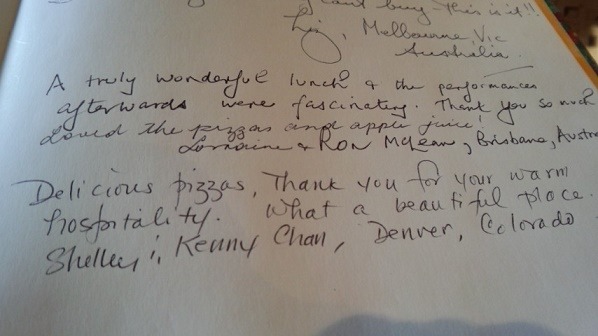 can't buy - this is it!!
Liz, Melbourne Vic
Australia.
A truly wonderful lunch & the performances
afterwards were fascinating. Thank you so much
Loved the pizzas and apple juice!
Lorraine & Ron McLean, Brisbane, Austra
Delicious pizzas, Thank you for your warm
hospitality. What a beautiful place.
Shelley & Kenny Chan, Denver, Colorado